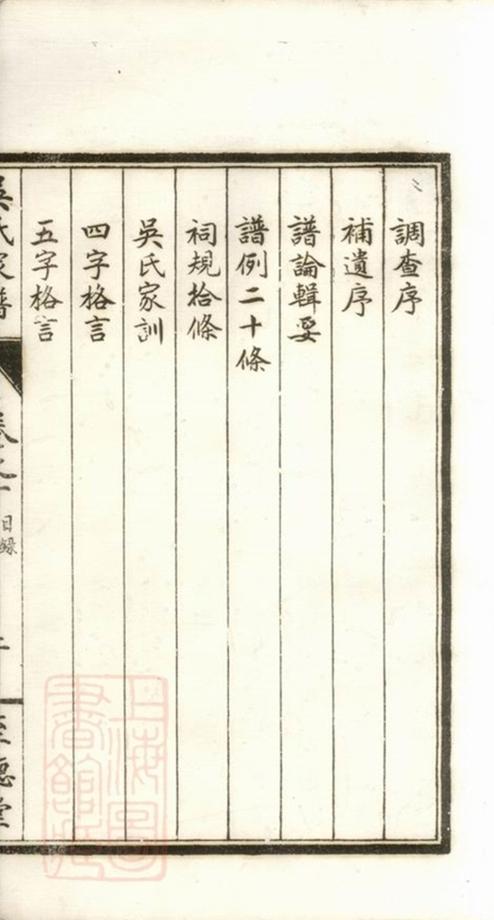 調查序
補遺序
譜論輯要
譜例二十條
祠規拾條
吳氏家訓
四字格言
五字格言
吳氏家譜
卷之
目錄
至德堂
上海圖書館藏